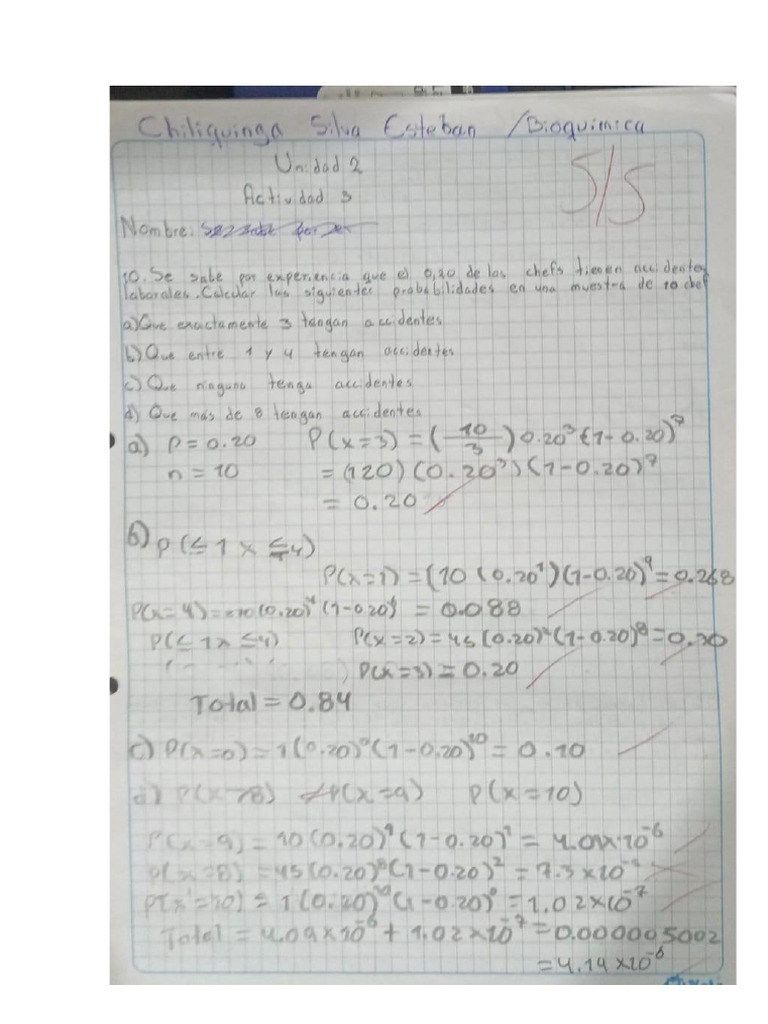 Chiliquinga Silva Esteban /Bioquimica
Unidad 2
Actividad 3
5/5
Nombre:
10. Se sabe por experiencia que el 0,20 de los chefs tienen accidentes
laborales. Calcular las siguientes probabilidades en una muestra de 10 chef
a) Que exactamente 3 tengan accidentes
b) Que entre 1 y 4 tengan accidentes
c) Que ninguno tenga accidentes
d) Que más de 8 tengan accidentes
a) P = 0.20 P(x=3) = (10/3) 0.20³ (1-0.20)⁷
n = 10 = (120) (0.20³) (1-0.20)⁷
= 0.20
b) P(≤ 1 x ≤4)
P(x=1) = (10 (0.20¹) (1-0.20)⁹ = 0.268
P(x=4) = (0.20)⁴ (1-0.20) = 0.088
P(≤ 1x ≤4) P(x=2) = 45 (0.20)² (1-0.20)⁸ = 0.30
P(x=3) = 0.20
Total = 0.84
c) P(x=0) = 1(0.20)⁰ (1-0.20)¹⁰ = 0.10
d) P(x>8) P(x=9) P(x=10)
P(x=9) = 10 (0.20)⁹ (1-0.20)¹ = 4.09x10⁻⁶
P(x=8) = 45 (0.20)⁸ (1-0.20)² = 7.3x10
P(x=10) = 1(0.20)¹⁰ (1-0.20)⁰ = 1.02x10⁻⁷
Total = 4.09x10⁻⁶ + 1.02x10⁻⁷ = 0.000005002
= 4.14x10⁻⁶